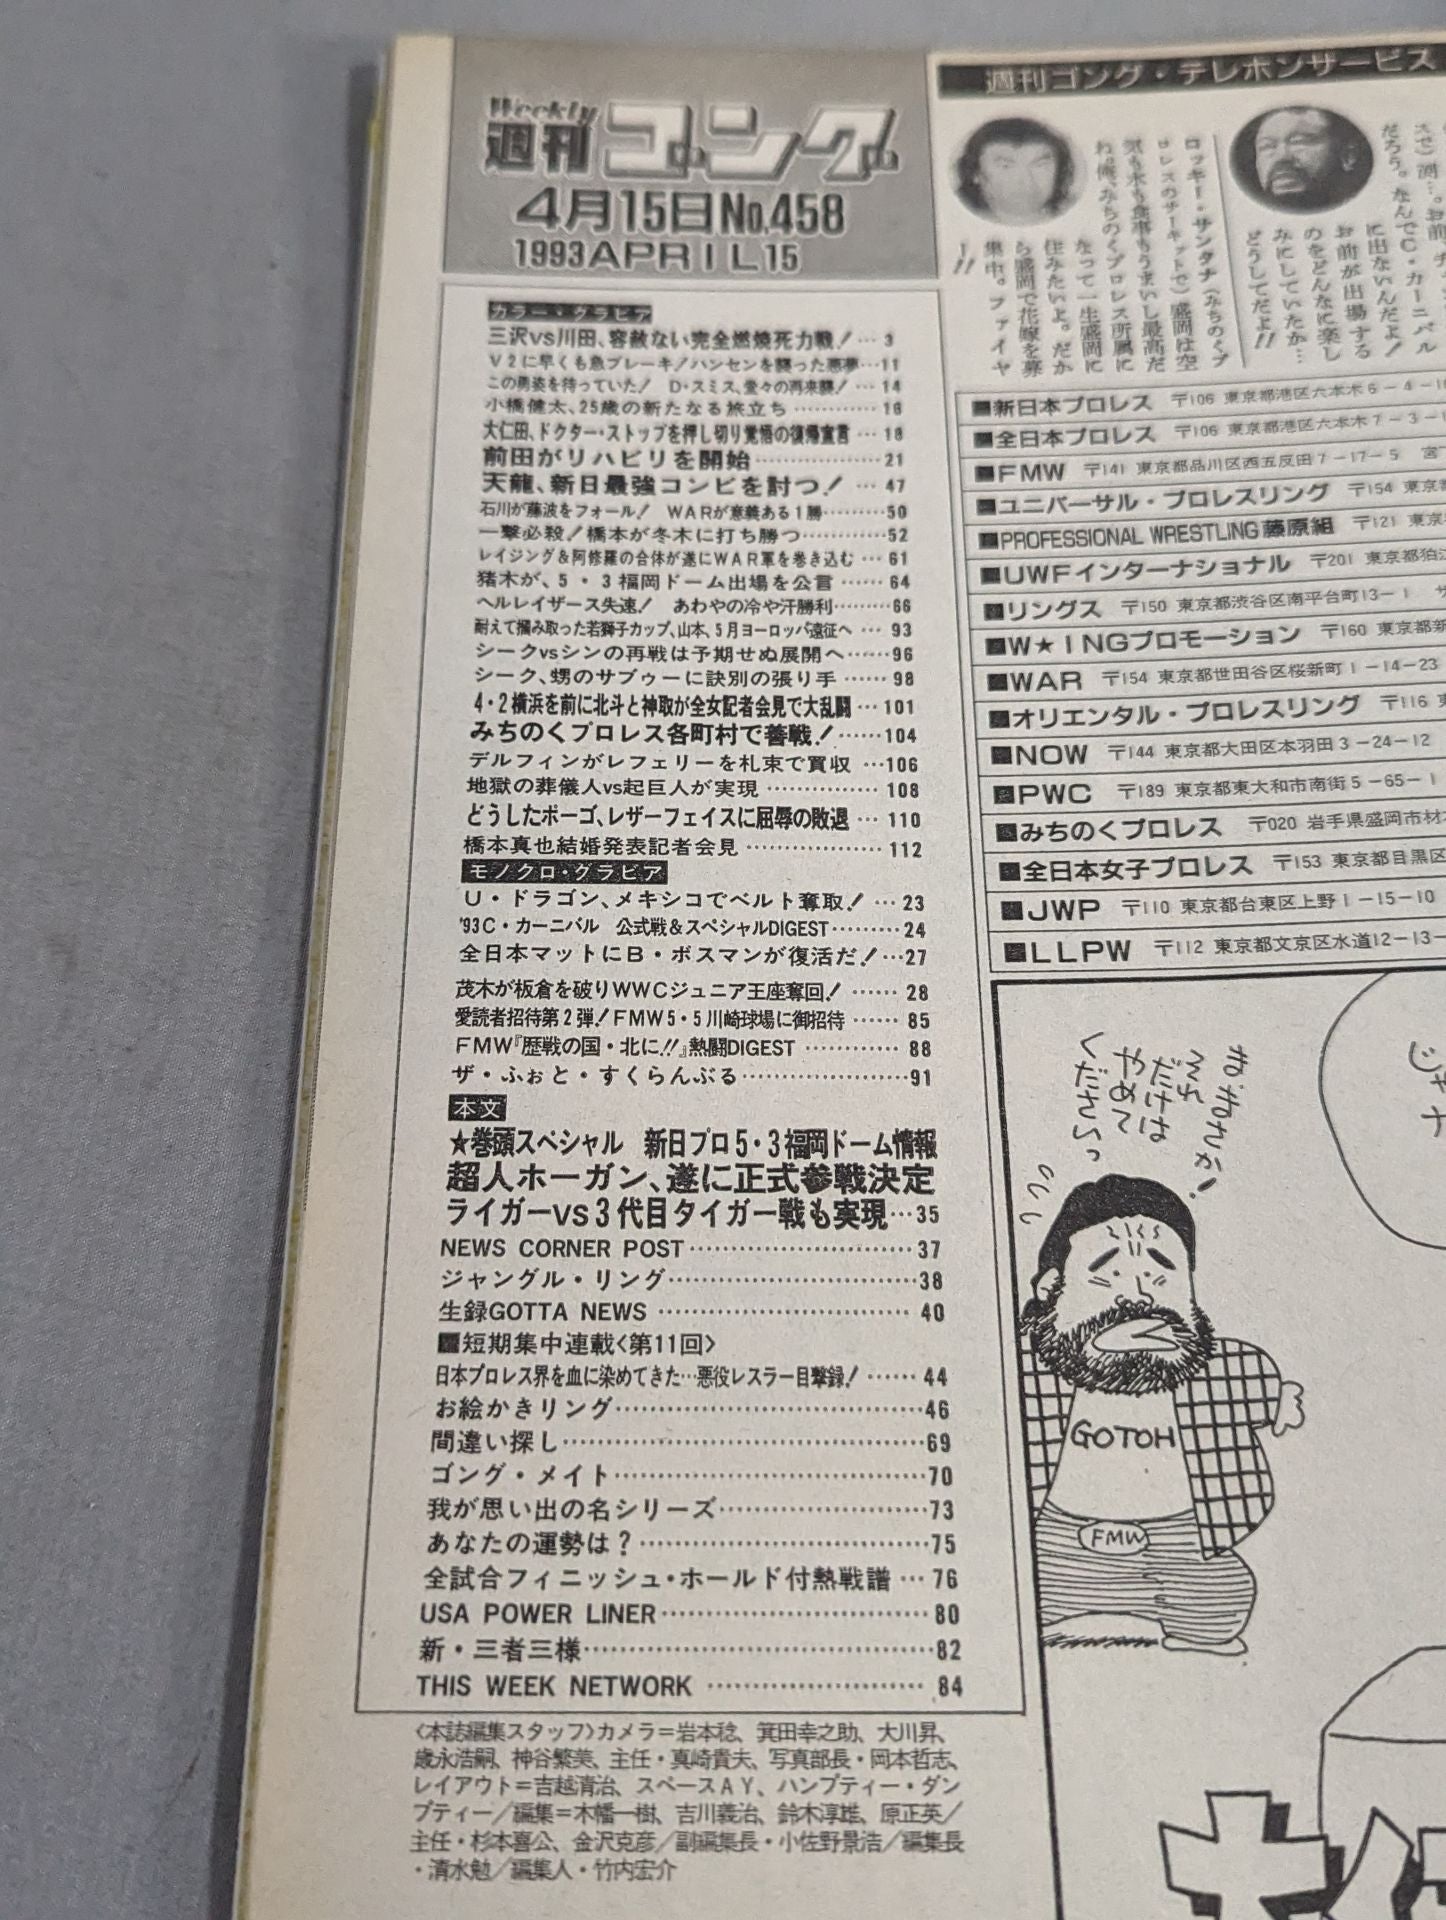 Weekly
週刊ゴング
4月15日No.458
1993APRIL15
カラー・グラビア
三沢vs川田、容赦ない完全燃焼死力戦！… 3
V2に早くも急ブレーキ！ハンセンを襲った悪夢…11
この勇姿を待っていた！ D・スミス、堂々の再来襲！… 14
小橋健太、25歳の新たなる旅立ち………… 16
大仁田、ドクター・ストップを押し切り覚悟の復帰宣言… 18
前田がリハビリを開始……………… 21
天龍、新日最強コンビを討つ！… 47
石川が藤波をフォール！ WARが意義ある1勝………50
一撃必殺！橋本が冬木に打ち勝つ…………52
レイジング＆阿修羅の合体が遂にWAR軍を巻き込む… 61
猪木が、5・3福岡ドーム出場を公言…… 64
ヘルレイザース失速！ あわやの冷や汗勝利………66
耐えて掴み取った若獅子カップ、山本、5月ヨーロッパ遠征へ… 93
シークvsシンの再戦は予期せぬ展開へ……96
シーク、甥のサブゥーに訣別の張り手…… 98
4・2横浜を前に北斗と神取が全女記者会見で大乱闘…101
みちのくプロレス各町村で善戦！……104
デルフィンがレフェリーを札束で買収…106
地獄の葬儀人vs起巨人が実現…………… 108
どうしたボーゴ、レザーフェイスに屈辱の敗退… 110
橋本真也結婚発表記者会見……………… 112
モノクロ・グラビア
U・ドラゴン、メキシコでベルト奪取！… 23
'93C・カーニバル 公式戦＆スペシャルDIGEST………24
全日本マットにB・ボスマンが復活だ！…27
茂木が板倉を破りWWCジュニア王座奪回！…… 28
愛読者招待第2弾！FMW5・5川崎球場に御招待…… 85
FMW『歴戦の国・北に!!』熱闘DIGEST………… 88
ザ・ふぉと・すくらんぶる………………91
本文
★巻頭スペシャル 新日プロ5・3福岡ドーム情報
超人ホーガン、遂に正式参戦決定
ライガーvs3代目タイガー戦も実現…35
NEWS CORNER POST……………………37
ジャングル・リング………………………38
生録GOTTA NEWS……………………… 40
■短期集中連載〈第11回〉
日本プロレス界を血に染めてきた…悪役レスラー目撃録！…… 44
お絵かきリング……………………………46
間違い探し…………………………………69
ゴング・メイト……………………………70
我が思い出の名シリーズ…………………73
あなたの運勢は？…………………………75
全試合フィニッシュ・ホールド付熱戦譜… 76
USA POWER LINER………………………80
新・三者三様………………………………82
THIS WEEK NETWORK………………… 84
〈本誌編集スタッフ〉カメラ＝岩本稔、箕田幸之助、大川昇、
歳永浩嗣、神谷繁美、主任・真崎貴夫、写真部長・岡本哲志、
レイアウト＝吉越清治、スペースAY、ハンプティー・ダン
プティー／編集＝木幡一樹、吉川義治、鈴木淳雄、原正英／
主任・杉本喜公、金沢克彦／副編集長・小佐野景浩／編集長
・清水勉／編集人・竹内宏介
週刊ゴング・テレホンサービス
たぜ）潤…。お前
だろう。なんでC・カーニバル
に出ないんだよ！
お前が出場する
のをどんなに楽し
みにしていたか…
どうしてだよ!!
ロッキー・サンタナ（みちのくプ
ロレスのサーキットで）盛岡は空
気も水も食事もうまいし最高だ
ね。俺、みちのくプロレス所属に
なって一生盛岡に
住みたいよ。だか
ら盛岡で花嫁を募
集中。ファイヤ
ー!!
■新日本プロレス 〒106 東京都港区六本木6－4－10
■全日本プロレス 〒106 東京都港区六本木7－3－1
■FMW 〒141 東京都品川区西五反田7－17－5 宮下
■ユニバーサル・プロレスリング 〒154 東京都
■PROFESSIONAL WRESTLING藤原組 〒121 東京
■UWFインターナショナル 〒201 東京都狛江
■リングス 〒150 東京都渋谷区南平台町13－1 サ
■W★INGプロモーション 〒160 東京都新
■WAR 〒154 東京都世田谷区桜新町1－14－23
■オリエンタル・プロレスリング 〒116 東
■NOW 〒144 東京都大田区本羽田3－24－12
■PWC 〒189 東京都東大和市南街5－65－1
■みちのくプロレス 〒020 岩手県盛岡市材木
■全日本女子プロレス 〒153 東京都目黒区
■JWP 〒110 東京都台東区上野1－15－10
■LLPW 〒112 東京都文京区水道12－13－
だけは
やめて
ください
GOTOH
FMW